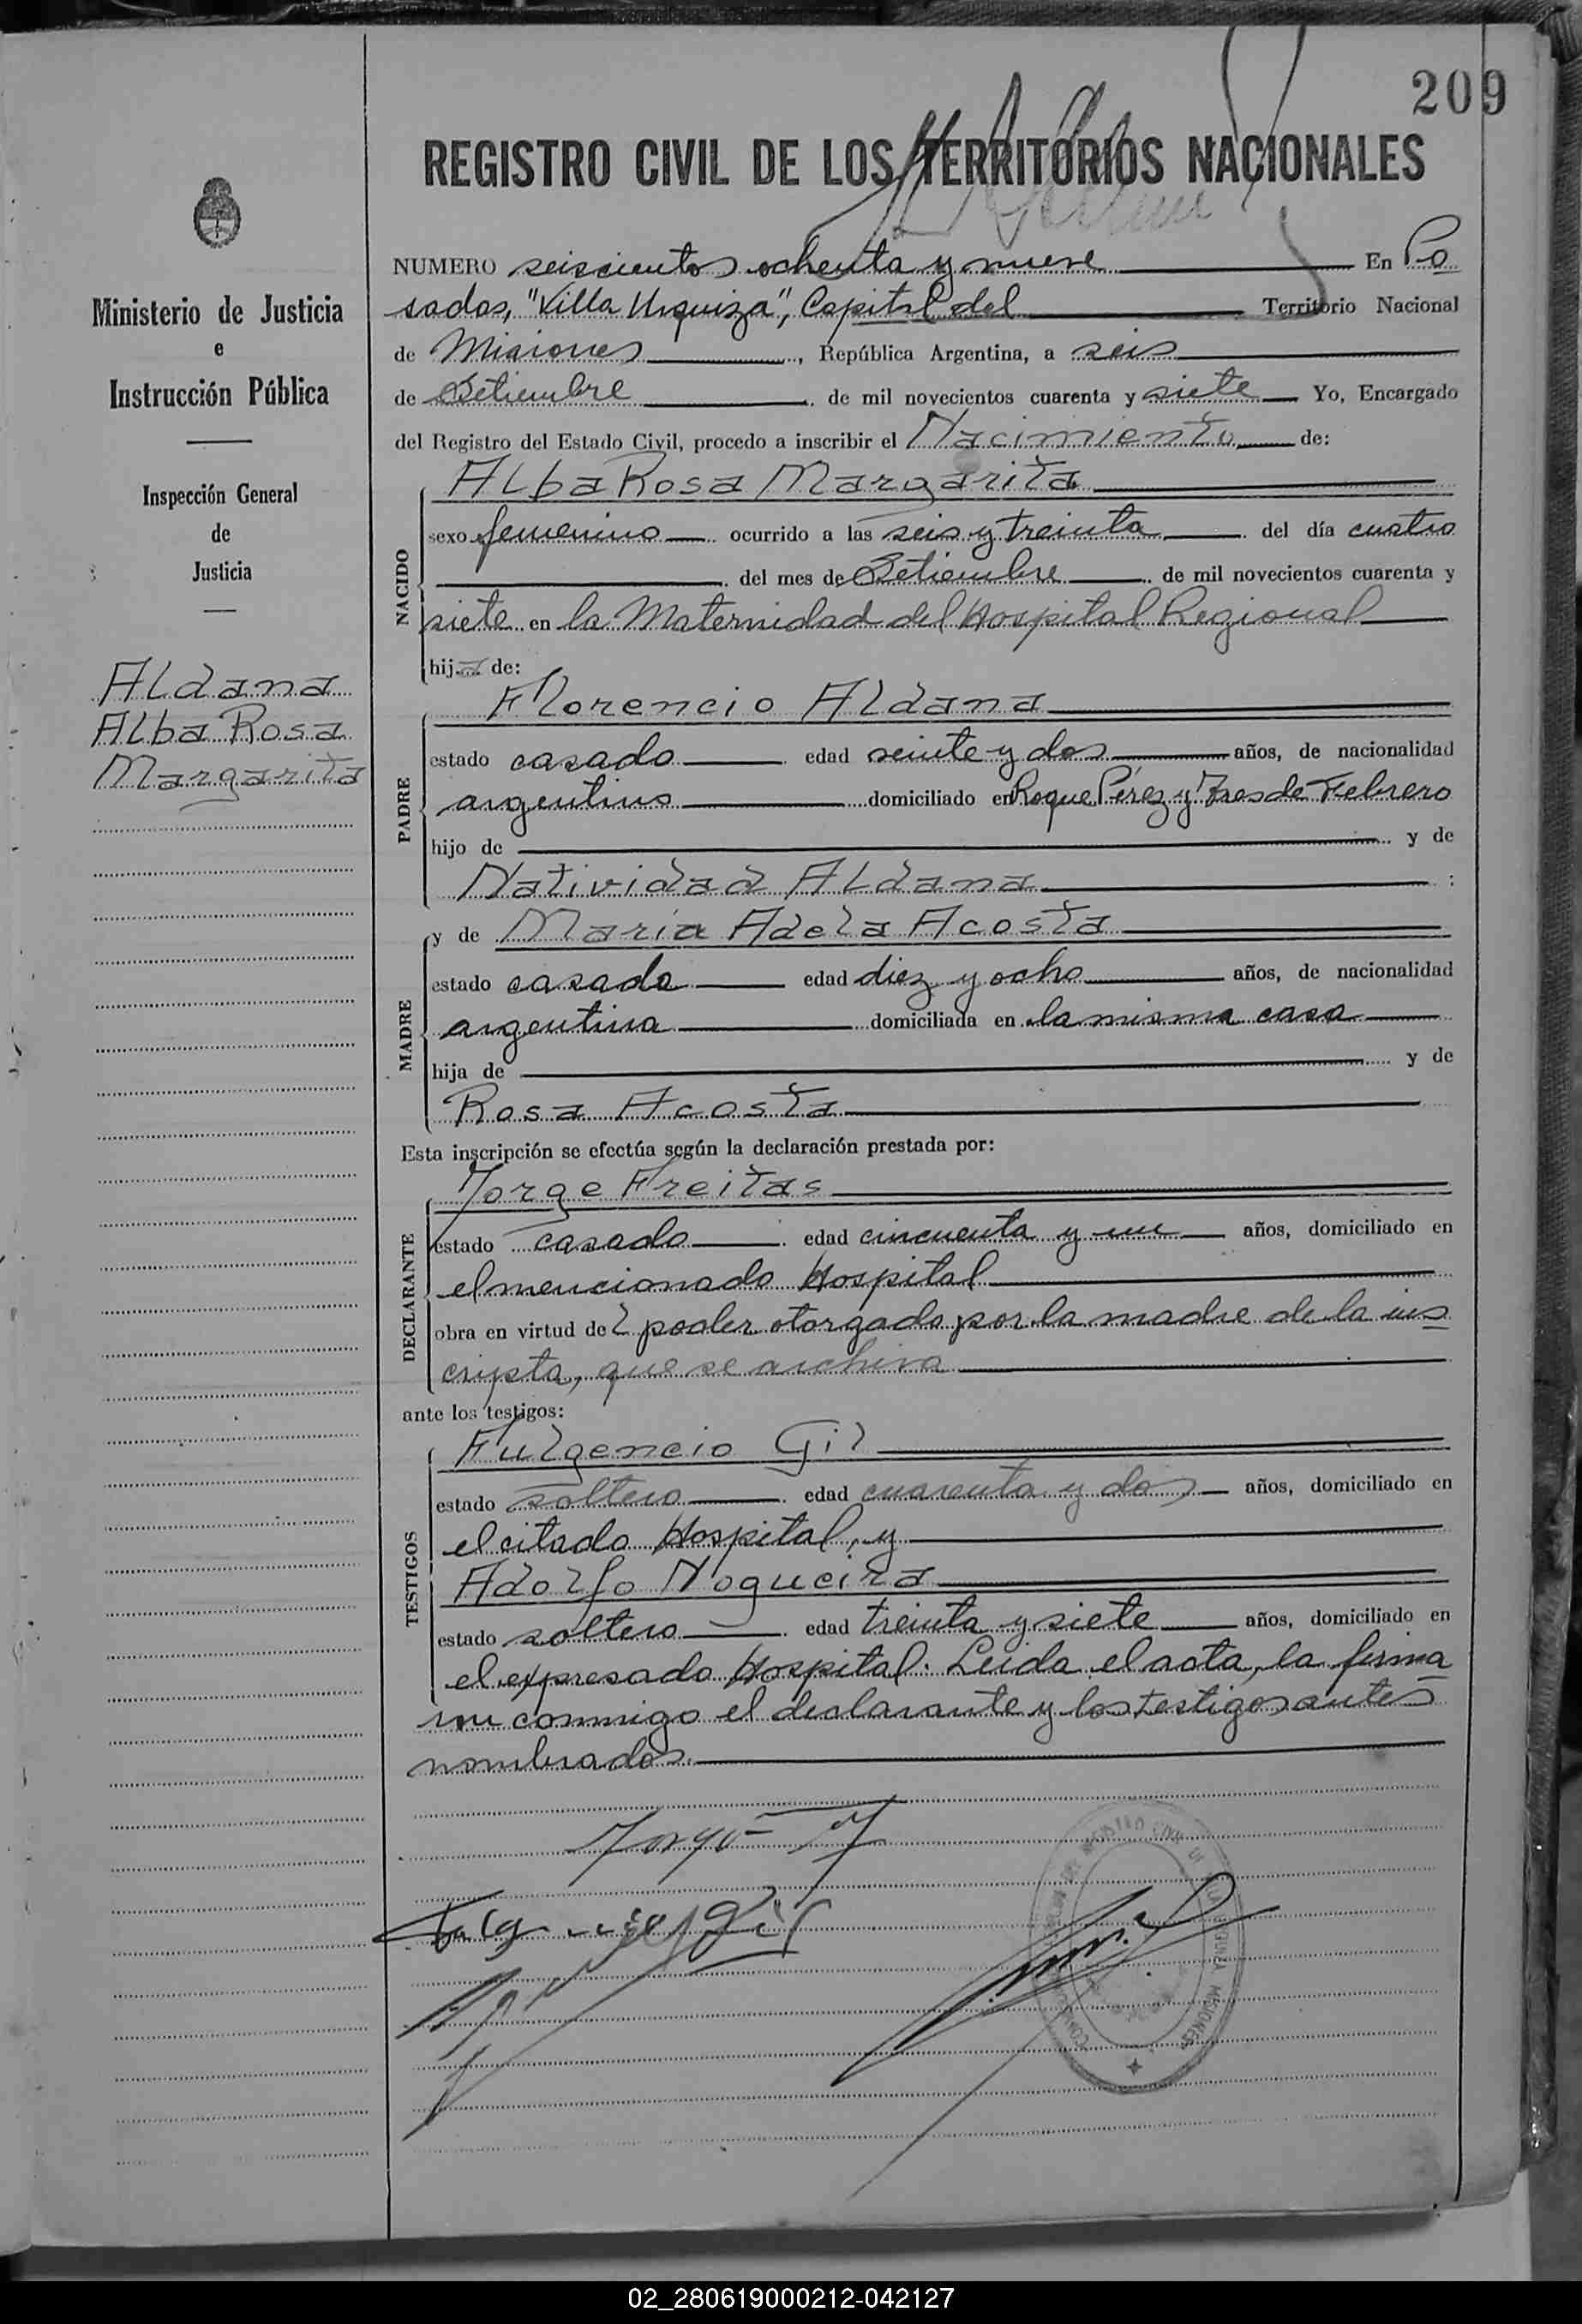 209
REGISTRO CIVIL DE LOS TERRITORIOS NACIONALES
Ministerio de Justicia
e
Instrucción Pública
Inspección General
de
Justicia
Aldana
Alba Rosa
Margarita
NUMERO seiscientos ochenta y nueve En Po
sadas, "Villa Urquiza", Capital del Territorio Nacional
de Misiones, República Argentina, a seis
de Setiembre de mil novecientos cuarenta y siete Yo, Encargado
del Registro del Estado Civil, procedo a inscribir el Nacimiento de:
NACIDO
Alba Rosa Margarita
sexo femenino ocurrido a las seis y treinta del día cuatro
del mes de Setiembre de mil novecientos cuarenta y
siete en la Maternidad del Hospital Regional
hija de:
PADRE
Florencio Aldana
estado casado edad veinte y dos años, de nacionalidad
argentino domiciliado en Roque Pérez y Tres de Febrero
hijo de y de
Natividad Aldana :
MADRE
y de María Adela Acosta
estado casada edad diez y ocho años, de nacionalidad
argentina domiciliada en la misma casa
hija de y de
Rosa Acosta
Esta inscripción se efectúa según la declaración prestada por:
DECLARANTE
Jorge Freitas
estado casado edad cincuenta y un años, domiciliado en
el mencionado Hospital
obra en virtud del poder otorgado por la madre de la ins
cripta, que se archiva
ante los testigos:
TESTIGOS
Fulgencio Gil
estado soltero edad cuarenta y dos años, domiciliado en
el citado Hospital, y
Adolfo Nogueira
estado soltero edad treinta y siete años, domiciliado en
el expresado Hospital. Leída el acta, la firma
ron conmigo el declarante y los testigos antes
nombrados.
Jorge
02_280619000212-042127